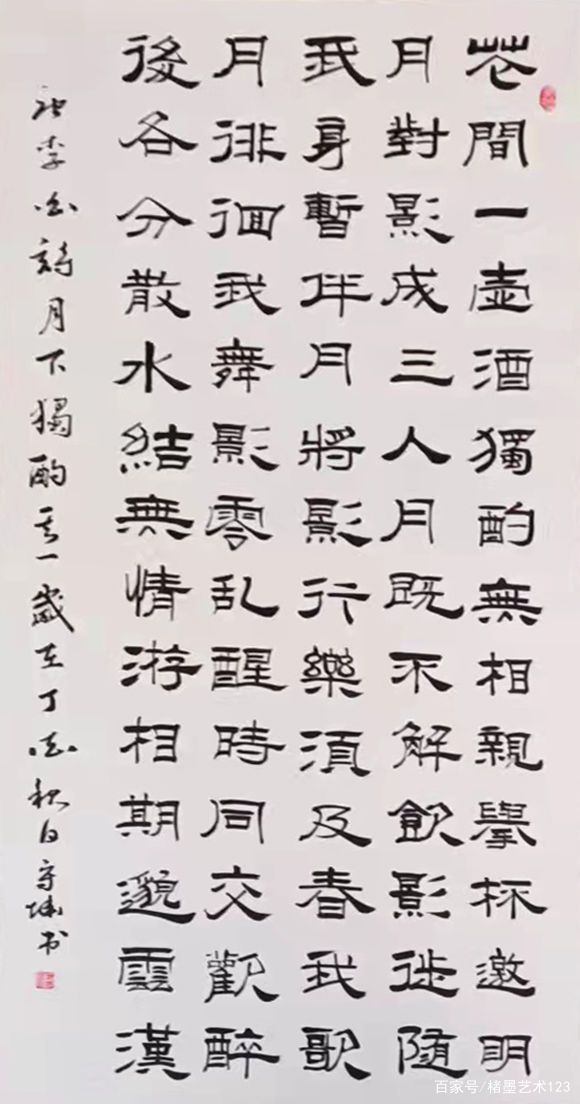 花間一壺酒獨酌無相親舉杯邀明
月對影成三人月既不解飲影徒隨
我身暫伴月將影行樂須及春我歌
月徘徊我舞影零乱醒時同交歡醉
後各分散水結無情游相期邈雲漢
李白詩月下獨酌其一歲在丁酉秋日守书
百家号/楮墨艺术123